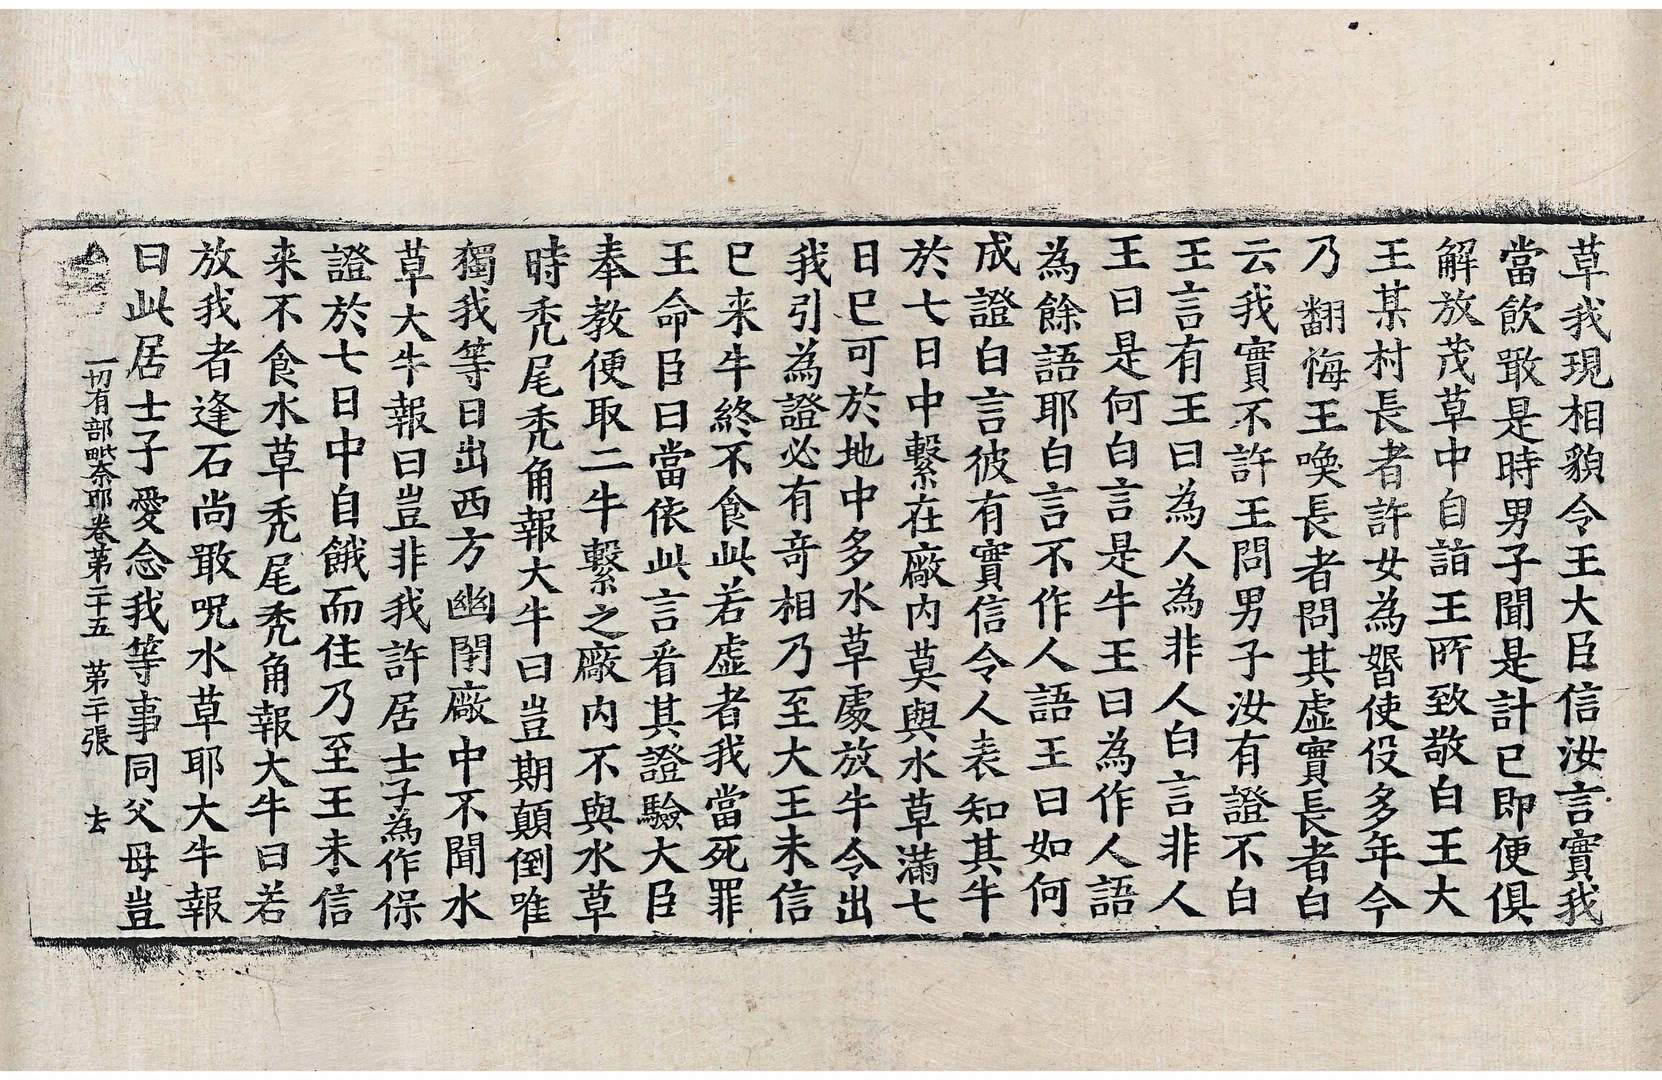 草我現相貌令王大臣信汝言實我
當飲噉是時男子聞是計已即便俱
解放茂草中自詣王所致敬白王大
王某村長者許女為婚使役多年今
乃翻悔王喚長者問其虛實長者白
云我實不許王問男子汝有證不白
王言有王曰為人為非人白言非人
王曰是何白言是牛王曰為作人語
為餘語耶白言不作人語王曰如何
成證白言彼有實信令人表知其牛
於七日中繫在廠內莫與水草滿七
日已可於地中多水草處放牛令出
我引為證必有竒相乃至大王未信
已来牛終不食此若虛者我當死罪
王命臣曰當依此言看其證驗大臣
奉教便取二牛繫之廠內不與水草
時禿尾禿角報大牛曰豈期顛倒唯
獨我等日出西方幽閉廠中不聞水
草大牛報曰豈非我許居士子為作保
證於七日中自餓而住乃至王未信
来不食水草禿尾禿角報大牛曰若
放我者逢石尚噉呪水草耶大牛報
曰此居士子愛念我等事同父母豈
一切有部毗奈耶卷第二十五 第二十張 去